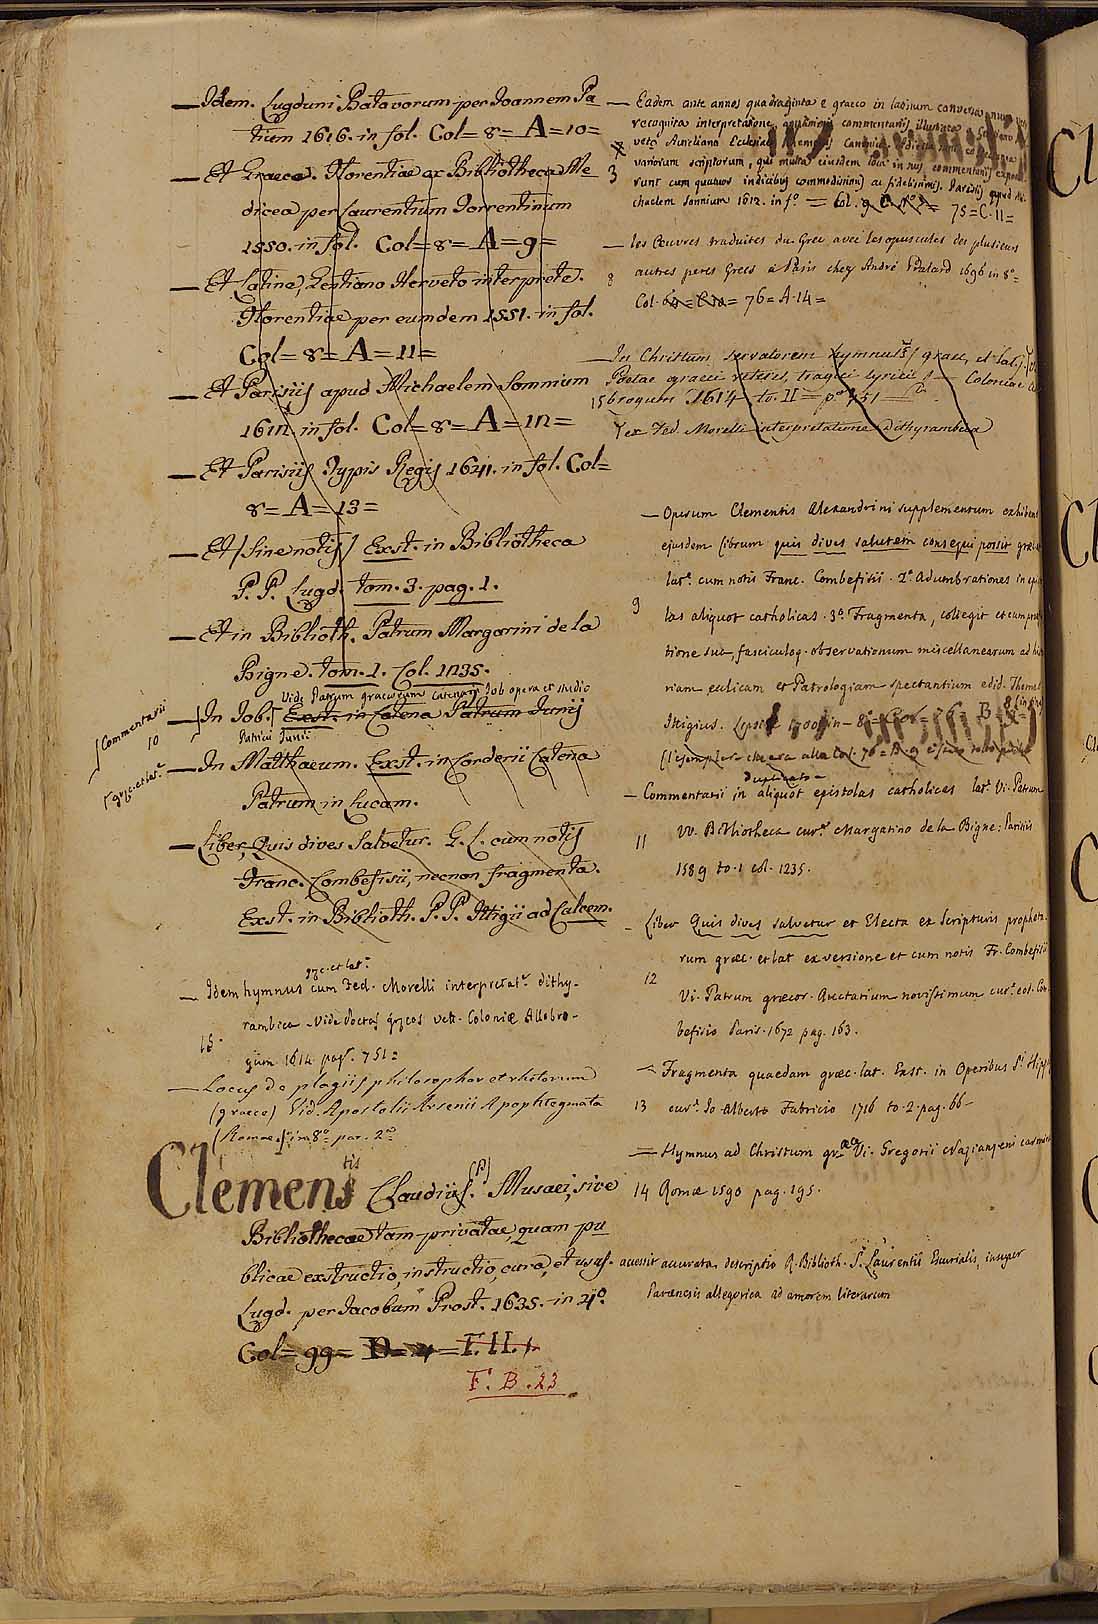 Idem. Lugduni Batavorum per Joannem Pa
tium 1616. in fol. Col= 8= A=10=
Et Graece. Florentiae ex Bibliotheca Me
dicea per Laurentium Torrentinum
1550. in fol. Col= 8= A= 9=
Et Latine, Gentiano Herveto interprete.
Florentiae per eumdem 1551. in fol.
Col= 8= A= 11=
Et Parisiis apud Michaelem Somnium
1612. in fol. Col= 8= A= 12=
Et Parisiis Typis Regis 1641. in fol. Col=
8= A= 13=
Et (sine notis) Exst. in Bibliotheca
P. P. Lugd. tom. 3. pag. 1.
Et in Biblioth. Patrum Margarini de la
Bigne. tom. 1. Col. 1235.
Vide Patrum graecorum catenam Job opera et studio
In Job. Exst. in Catena Patrum Junij
Patricii Junii
Commentarii
10
græc. et lat.
In Matthaeum. Exst. in Corderii Catena
Patrum in Lucam.
Liber, Quis dives Salvetur. G. L. cum notis
Franc. Combefisii, necnon fragmenta.
Exst. in Biblioth. P. P. Ittigii ad Calcem.
græc. et lat.
Idem hymnus cum Fed. Morelli interpretat. dithy-
rambica Vide Poetas græcos vet. Coloniæ Allobro-
15.
gum 1614 pag. 751=
Locus de plagiis philosophor et rhetorum
(graece) Vid. Apostolii Arsenii Apophtegmata
(Romae) in 8° par. 2
Clemens
tis
Claudius. (P) Musaei, sive
Bibliothecae tam privatae, quam pu
blicae exstructio, instructio, cura, et usus.
Lugd. per Jacobum Prost. 1635. in 4°.
Col= 99= D= 4= F. II. 1.
F. B. 23
Eadem ante annos quadraginta e graeco in latinum conversa, nunc
recognita interpretatione, commentariis illustrata
veto Aureliano Ecclesiae Canonico
variorum scriptorum, qui multa ejusdem loca in suis commentariis
3
runt cum quatuor indicibus commodissimis ac fidelissimis. Parisiis apud Mi-
chaelem Somnium 1612. in f° = Col. 75=C.11=
les Œuvres traduites du Grec avec les opuscules des plusieurs
8
autres peres Grecs à Paris chez André Pralard 1696 in 8°=
Col. 76= A.14=
In Christum servatorem hymnus (graec. et lat.)
Poetae graeci veteres, tragici lyrici Coloniae
15 brogum 1614 to. II = p° 751
ex Fed. Morelli interpretatione dithyrambica
Operum Clementis Alexandrini supplementum exhibens
ejusdem librum quis dives salutem consequi possit
lat. cum notis Franc. Combefisii. 2° Adumbrationes in
9
las aliquot catholicas. 3° Fragmenta, collegit et cum
tione sua, fasciculoq. observationum miscellanearum ad
riam eclicam et Patrologiam spectantium edid. Thomas
Ittigius. Lipsiæ 1700 in 8°= 76 B 8
duplicato
Commentarii in aliquot epistolas catholicas lat. Vi. Patrum
11
vv. Bibliotheca cur. Margarino de la Bigne: Parisiis
1589 to. 1 col. 1235.
Liber Quis dives salvetur et Electa ex Scripturis propheta-
rum græc. et lat ex versione et cum notis Fr. Combefisii
12
Vi. Patrum græcor. Auctarium novissimum cur. eod. Com
befisio Paris. 1672 pag. 163.
Fragmenta quaedam græc. lat. Exst. in Operibus Sti Hipp
13 cur. Jo. Alberto Fabricio 1716 to. 2. pag. 66-
Hymnus ad Christum græce Vi. Gregorii Nazianzeni
14 Romæ 1590 pag. 195.
accessit accurata descriptio R. Biblioth. Sti Laurentii Escurialis, insuper
Parænesis allegorica ad amorem literarum